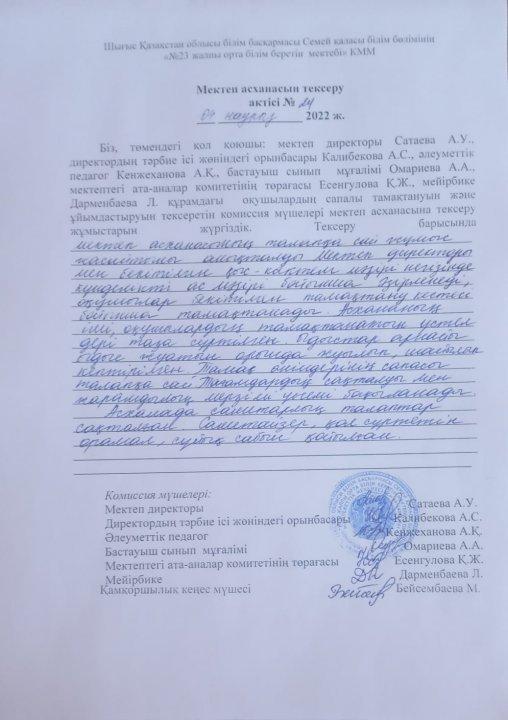 Шығыс Қазақстан облысы білім басқармасы Семей қаласы білім бөлімінің
«№23 жалпы орта білім беретін мектебі» КММ
Мектеп асханасын тексеру
актісі № 24
04 наурыз 2022 ж.
Біз, төмендегі қол қоюшы: мектеп директоры Сатаева А.У.,
директордың тәрбие ісі жөніндегі орынбасары Калибекова А.С., әлеуметтік
педагог Кенжеханова А.Қ., бастауыш сынып мұғалімі Омариева А.А.,
мектептегі ата-аналар комитетінің төрағасы Есенгулова Қ.Ж., мейірбике
Дарменбаева Л. құрамдағы оқушылардың сапалы тамақтануын және
ұйымдастыруын тексеретін комиссия мүшелері мектеп асханасына тексеру
жұмыстарын жүргіздік. Тексеру барысында
мектеп асханасының талапқа сай жұмыс
жасайтыны анықталды. Мектеп директоры
мен бекітілген қыс-көктем мәзірі негізінде
күнделікті ас мәзірі бойынша әзірленеді,
оқушылар бекітілген тамақтану кестесі
бойынша тамақтанады. Асхананың
іші, оқушылардың тамақтанатын үстел
дері таза сүртілген. Ыдыстар арнайы
ыдыс жуатын орында жуылып, шайылып
кептірілген. Тамақ өнімдерінің сапасы
талапқа сай. Тағамдардың сақталуы мен
жарамдылық мерзімі үнемі бақыланады.
Асханада санитарлық талаптар
сақталған. Санитайзер, қол сүртетін
орамал, сұйық сабын қойылған.
Комиссия мүшелері:
Мектеп директоры Сатаева А.У.
Директордың тәрбие ісі жөніндегі орынбасары Калибекова А.С.
Әлеуметтік педагог Кенжеханова А.Қ.
Бастауыш сынып мұғалімі Омариева А.А.
Мектептегі ата-аналар комитетінің төрағасы Есенгулова Қ.Ж.
Мейірбике Дарменбаева Л.
Қамқоршылық кеңес мүшесі Бейсембаева М.